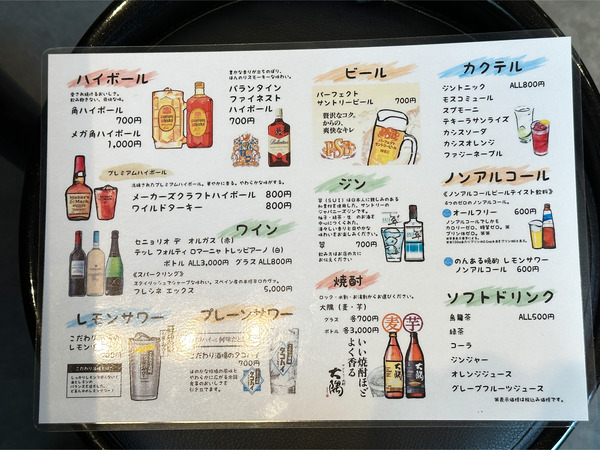 ハイボール
角ハイボール
700円
メガ角ハイボール
1,000円
バランタイン
ファイネスト
ハイボール
700円
プレミアムハイボール
メーカーズクラフトハイボール 800円
ワイルドターキー 800円
ワイン
セニョリオ デ オルガス (赤)
テッレ フォルティ ロマーニャ トレッビアーノ (白)
ボトル ALL3,000円 グラス ALL800円
《スパークリング》
スタイリッシュでシャープな味わい。スペイン産の本格辛口カヴァ。
フレシネ エックス 5,000円
レモンサワー
こだわり
レモンサワー
こだわり酒場のレモンサワー
プレーンサワー
こだわり酒場のタコハイ
700円
ビール
パーフェクト
サントリービール 700円
贅沢なコク。
からの、
爽快なキレ
ジン
翠 700円
焼酎
ロック・水割・お湯割からお選びください。
大隅 (麦・芋)
グラス 各700円
ボトル 各3,000円
麦 芋
いい焼酎ほど
よく香る
大隅
カクテル
ジントニック ALL800円
モスコミュール
スプモーニ
テキーラサンライズ
カシスソーダ
カシスオレンジ
ファジーネーブル
ノンアルコール
《ノンアルコールビールテイスト飲料》
4つのゼロのノンアルコール。
オールフリー 600円
のんある晩酌 レモンサワー
ノンアルコール 600円
ソフトドリンク
烏龍茶 ALL500円
緑茶
コーラ
ジンジャー
オレンジジュース
グレープフルーツジュース
※表示価格は税込み価格です。